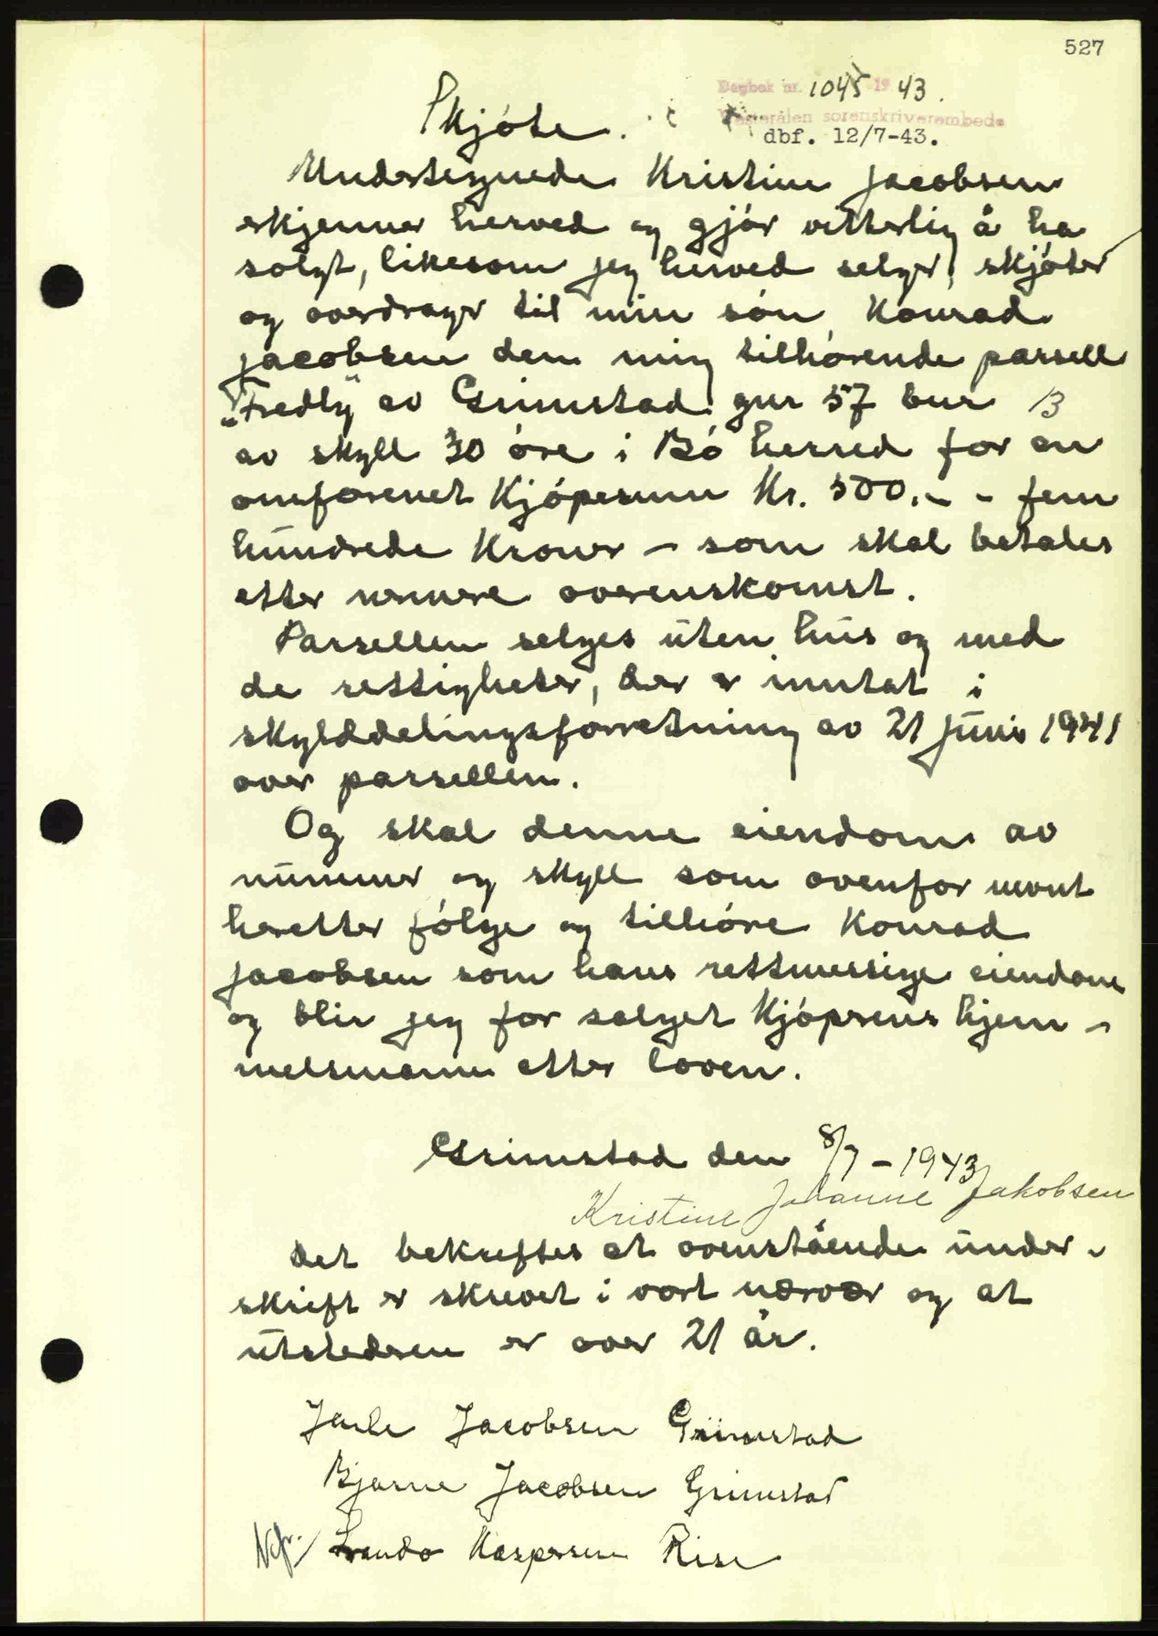 527
Dagbok nr. 1045 1943.
Vesterålen sorenskriverembede
dbf. 12/7-43.
Skjóte.
Undertegnede Kristine Jacobsen
erkjenner herved og gjór vitterlig å ha
solgt, likesom jeg herved selger, skjóter
og overdrager til min són Konrad
Jacobsen den mig tilhórende parsell
„Fredly" av Grimstad gnr 57 bnr 13
av skyll 30 óre i Bó herred for en
omforenet Kjópesum Kr. 500.- - fem
hundrede Kroner - som skal betales
etter nermere overenskomst.
Parsellen selges uten hus og med
de rettigheter, der er inntat i
skylddelingsforretning av 21 Juni 1941
over parsellen.
Og skal denne eiendom av
nummer og skyll som ovenfor nevnt
heretter fólge og tilhóre Konrad
Jacobsen som hans rettmessige eiendom
og blir jeg for salget Kjóperens hjem-
melsmann etter loven.
Grimstad den 8/7 - 1943
Kristine Johanne Jakobsen
Det bekreftes at ovenstående under-
skrift er skrevet i vort nærvær og at
utstederen er over 21 år.
Jarle Jacobsen Grimstad
Bjarne Jacobsen Grimstad
Kaspersen Rise